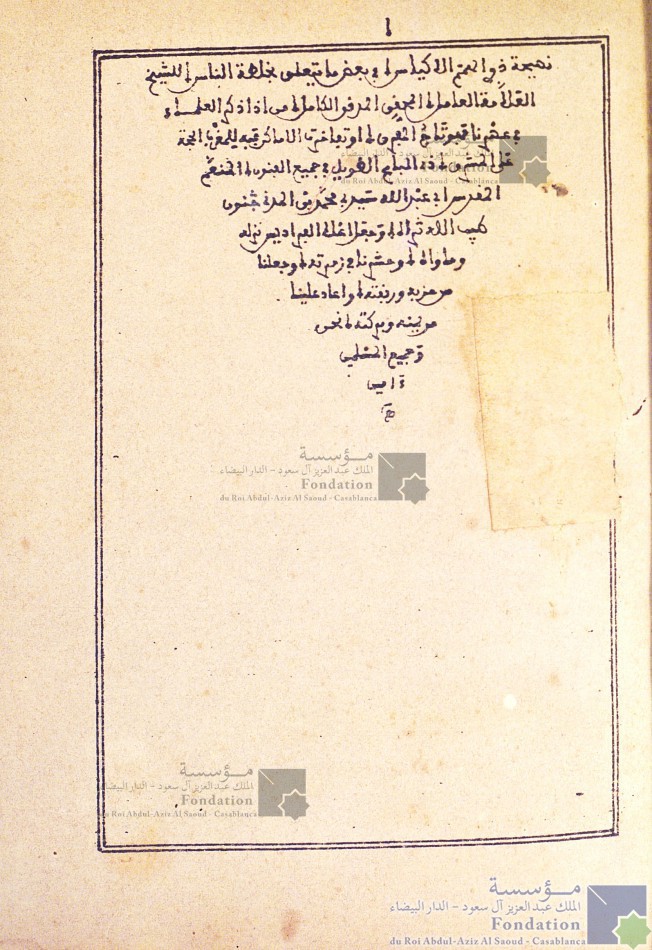 ١
نصيحة ذوي الهمم الاكياس في بعض ما يتعلق بخلطة الناس للشيخ
العلامة العامل المحقق المدقق الكامل من اذا ذكر العلماء
في عصرنا فهو تاج المفرق او تفاخرت الاماكن فبه للمغرب الحجة
على المشرق ذي الباع الطويل في جميع الفنون المنعم
المقدس ابي عبد الله سيدي محمد بن المدني جنون
طيب الله ثراه وجعل اعلى الفراديس نزله
وماواه وحشرنا في زمرته وجعلنا
من حزبه ورفقته واعاد علينا
من يمنه وبركته نحن
وجميع المسلمين
ءامين
مؤسسة
الملك عبد العزيز آل سعود - الدار البيضاء
Fondation
du Roi Abdul-Aziz Al Saoud - Casablanca
مؤسسة
الملك عبد العزيز آل سعود - الدار البيضاء
Fondation
du Roi Abdul-Aziz Al Saoud - Casablanca
مؤسسة
الملك عبد العزيز آل سعود - الدار البيضاء
Fondation
du Roi Abdul-Aziz Al Saoud - Casablanca
مؤسسة
الملك عبد العزيز آل سعود - الدار البيضاء
Fondation
du Roi Abdul-Aziz Al Saoud - Casablanca